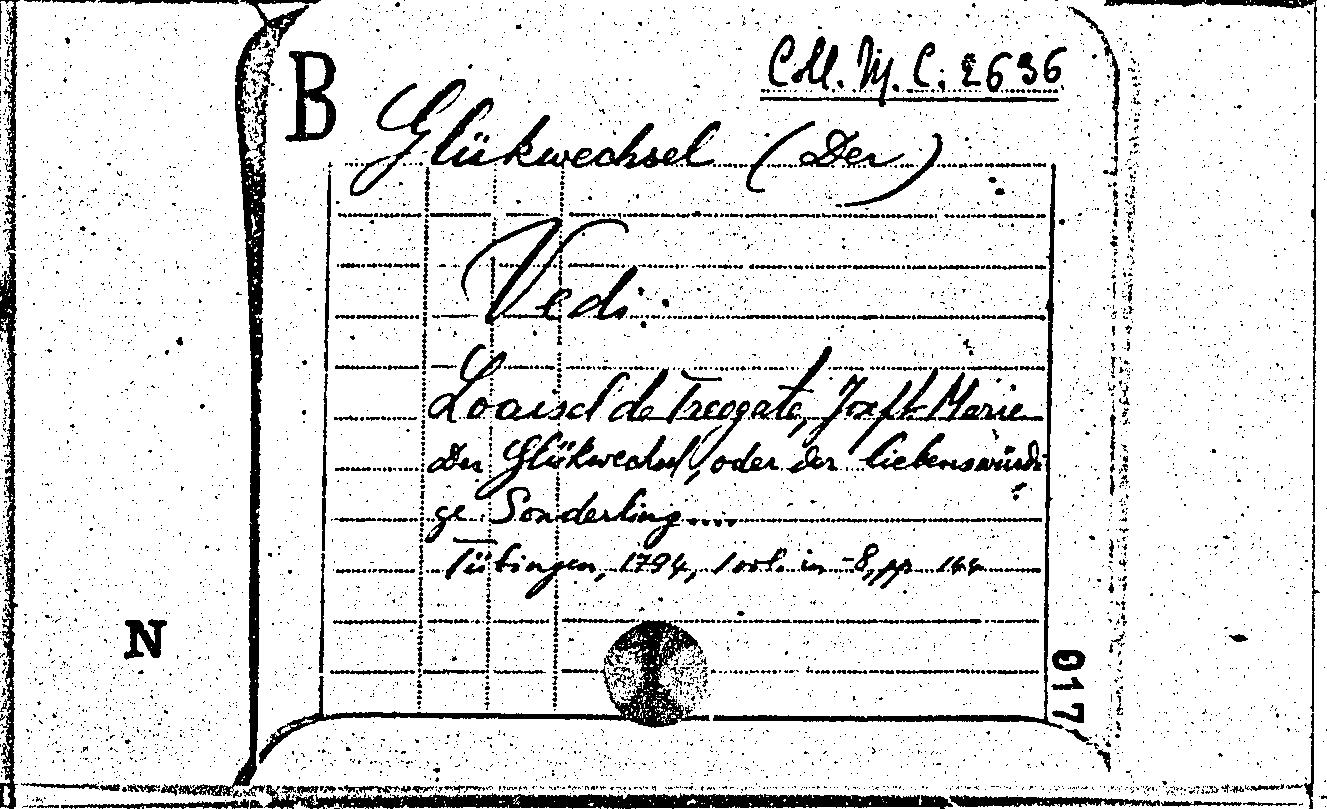 B
Coll. M. C. 2636
Glükwechsel (Der)
Vedi:
Loaisel de Treogate, Joseph-Marie
Der Glükwechsel, oder der liebenswürdi-
ge Sonderling....
Tübingen, 1794, 1 vol. in -8, pp 144
N
017